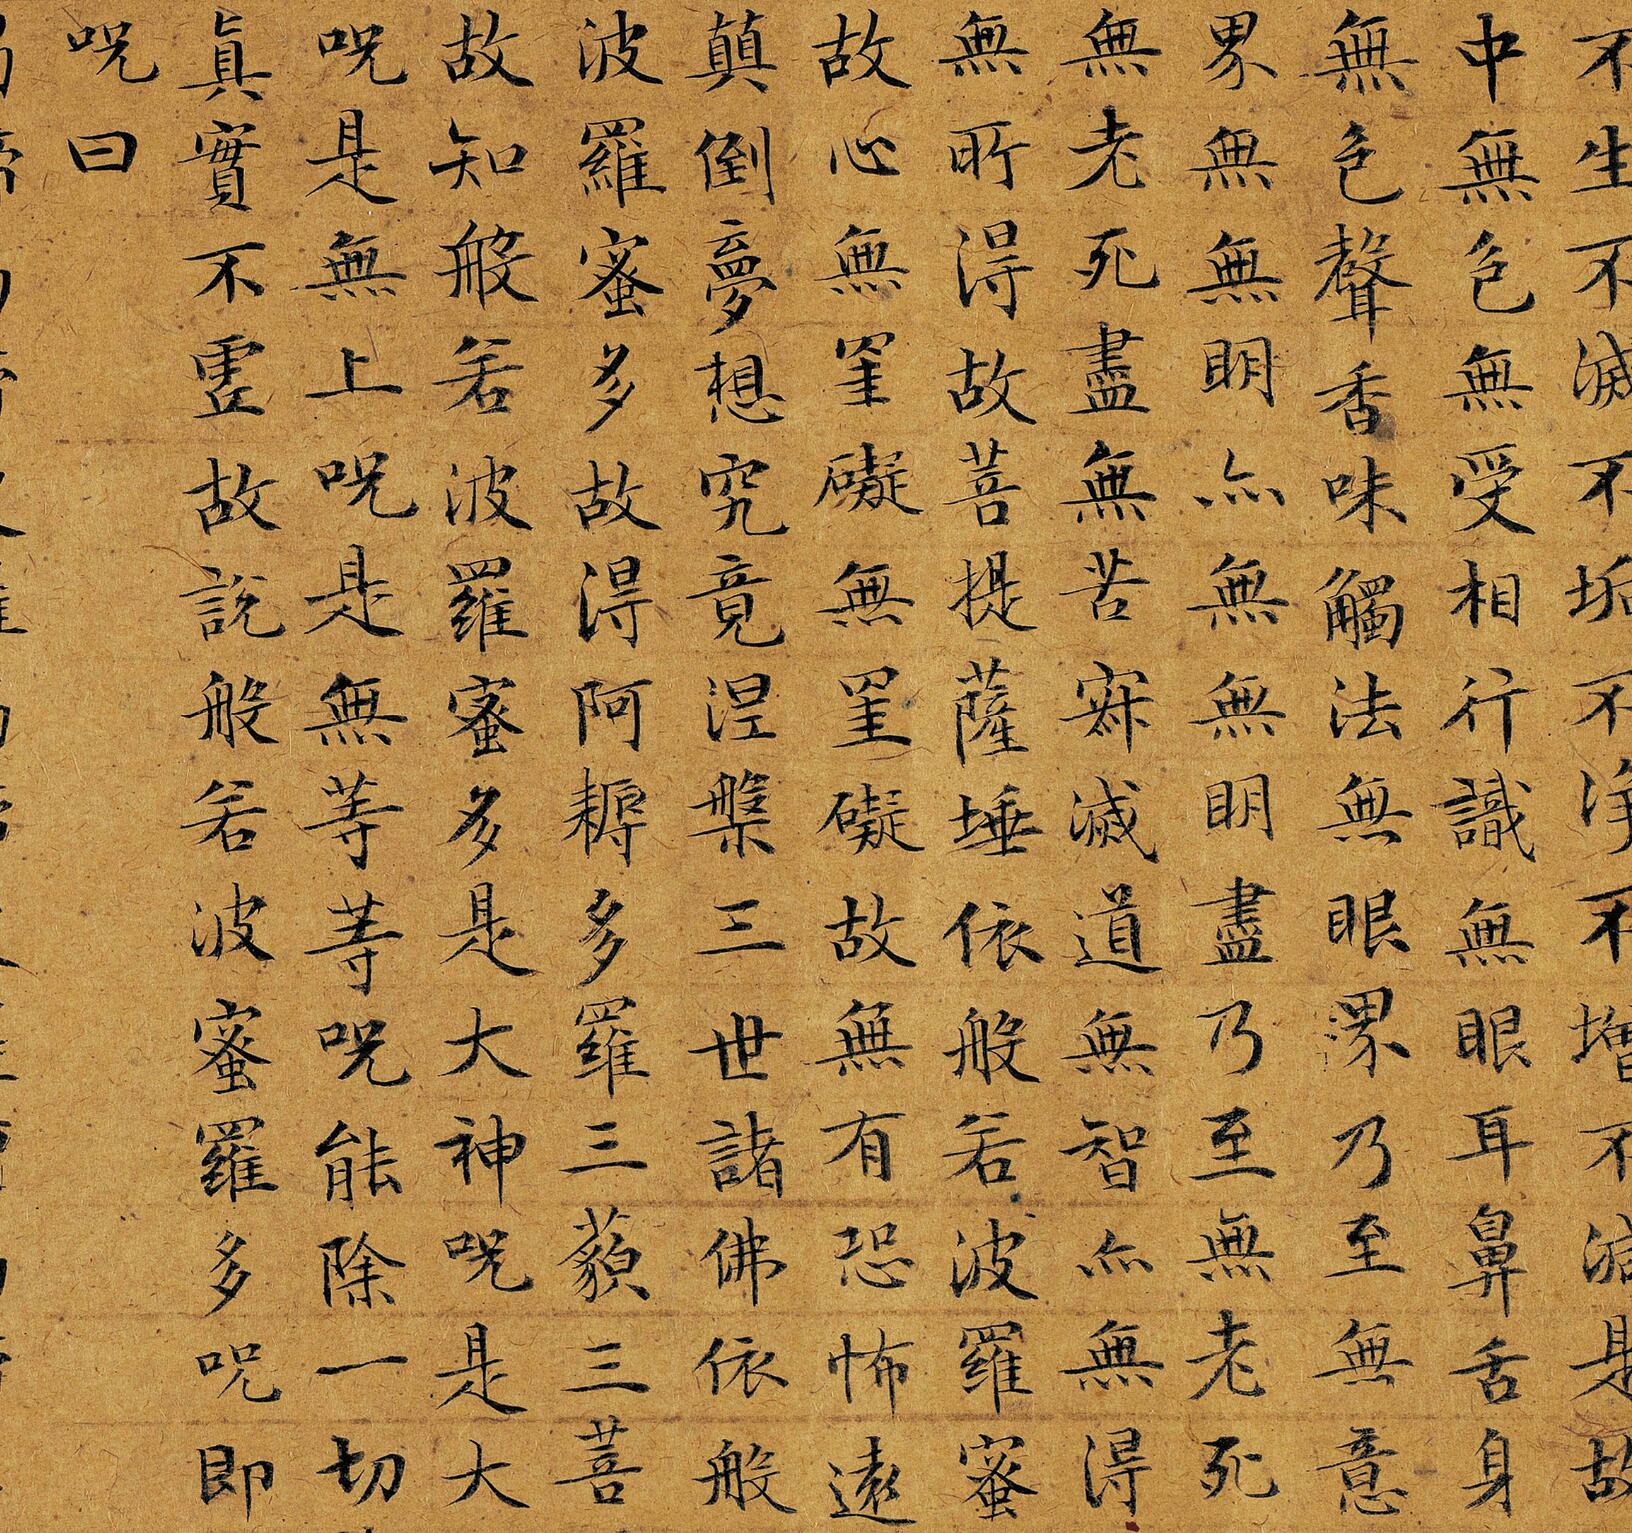 不生不滅不垢不淨不增不減是故
中無色無受相行識無眼耳鼻舌身
無色聲香味觸法無眼界乃至無意
界無無明亦無無明盡乃至無老死
無老死盡無苦寂滅道無智亦無得
無所得故菩提薩埵依般若波羅蜜
故心無罣礙無罣礙故無有恐怖遠
顛倒夢想究竟涅槃三世諸佛依般
波羅蜜多故得阿耨多羅三藐三菩
故知般若波羅蜜多是大神咒是大
咒是無上咒是無等等咒能除一切
真實不虛故說般若波蜜羅多咒即
咒曰